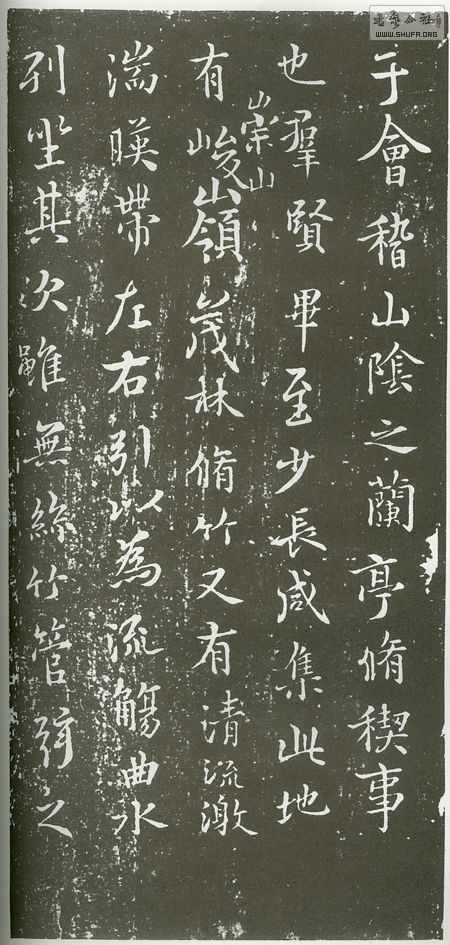 于會稽山陰之蘭亭脩稧事
也羣賢畢至少長咸集此地
有崇山峻領茂林脩竹又有清流激
湍暎帶左右引以為流觴曲水
列坐其次雖無絲竹管弦之
書法公社
WWW.SHUFA.ORG